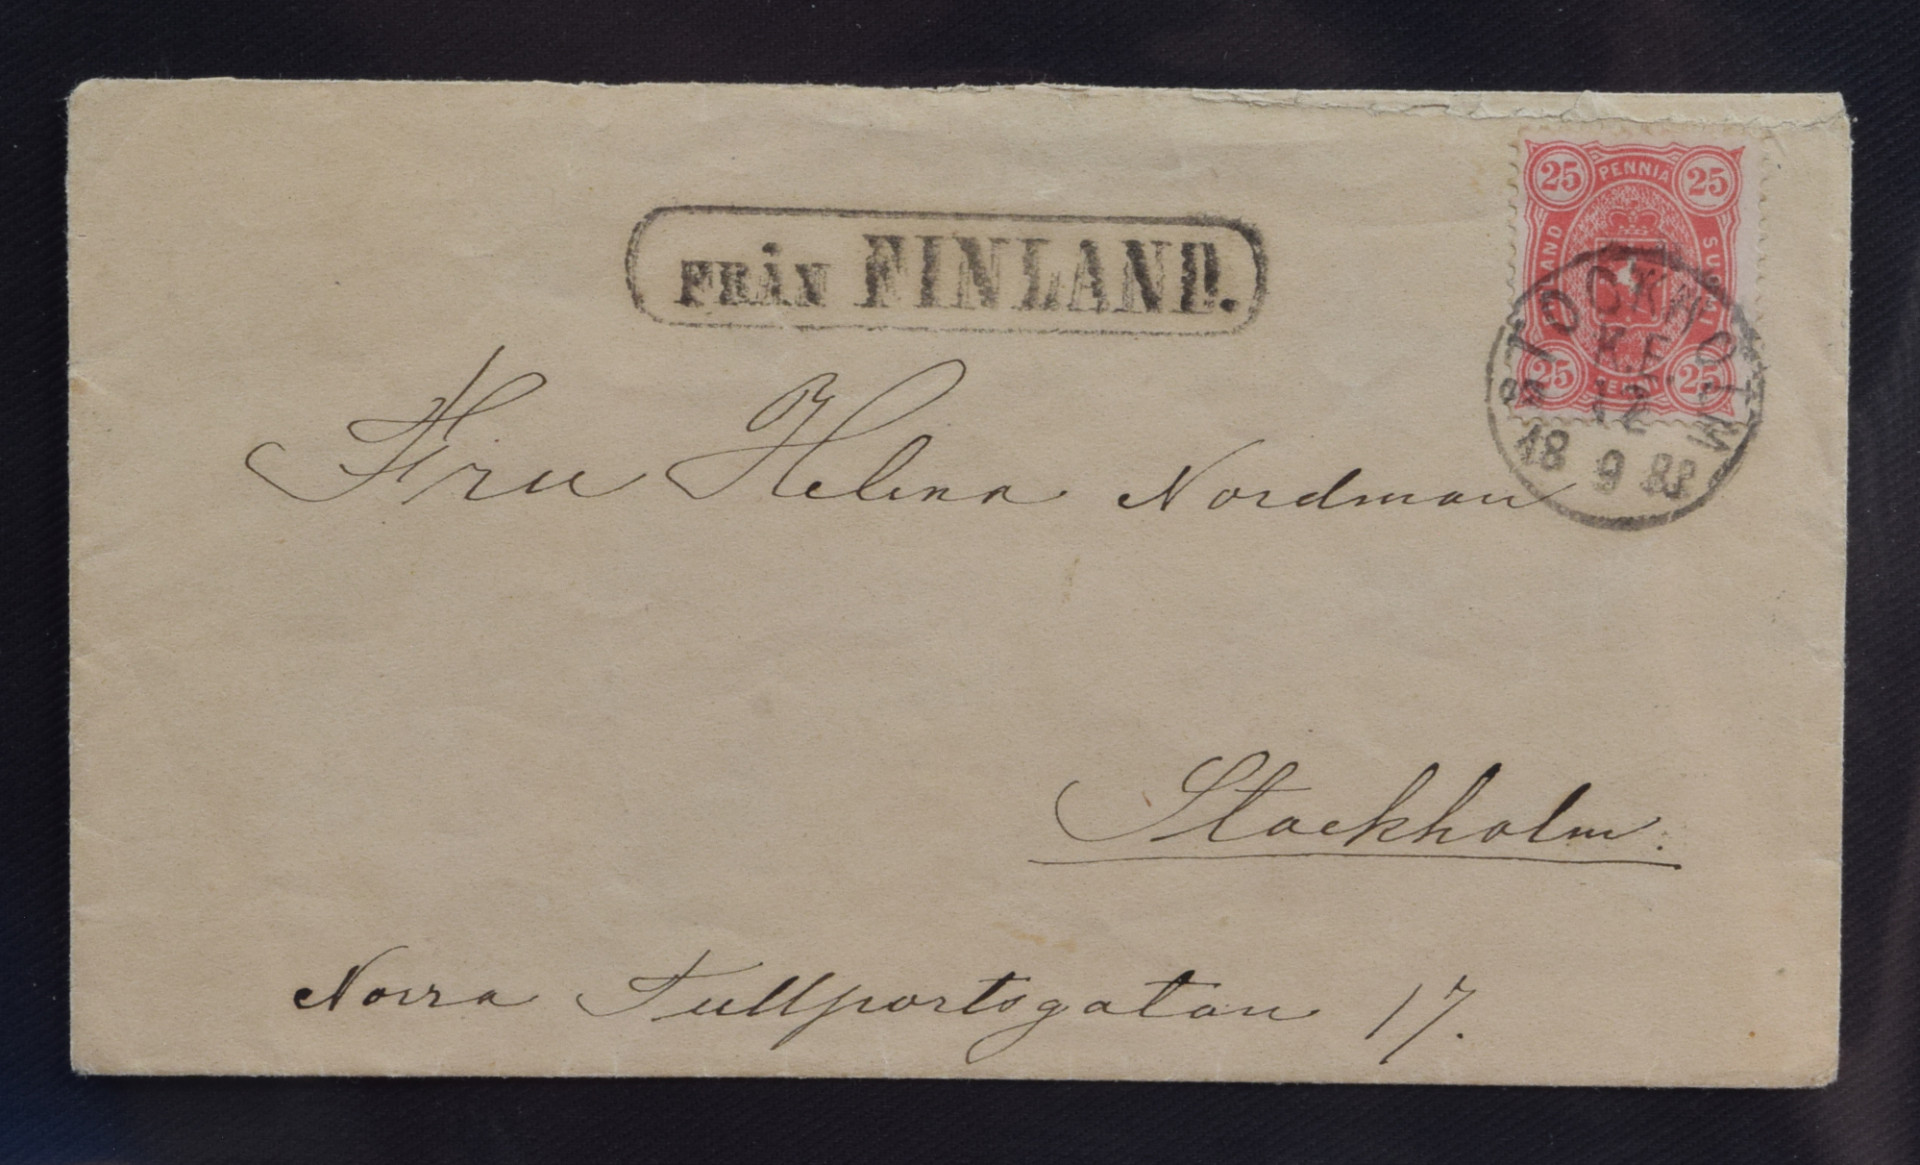 FRÅN FINLAND.
25 PENNIÄ 25
SUOMI
25 25
STOCKHOLM
K.E.
12
18 9 88
Fru Helena Nordman
Stockholm.
Norra Tullportsgatan 17.